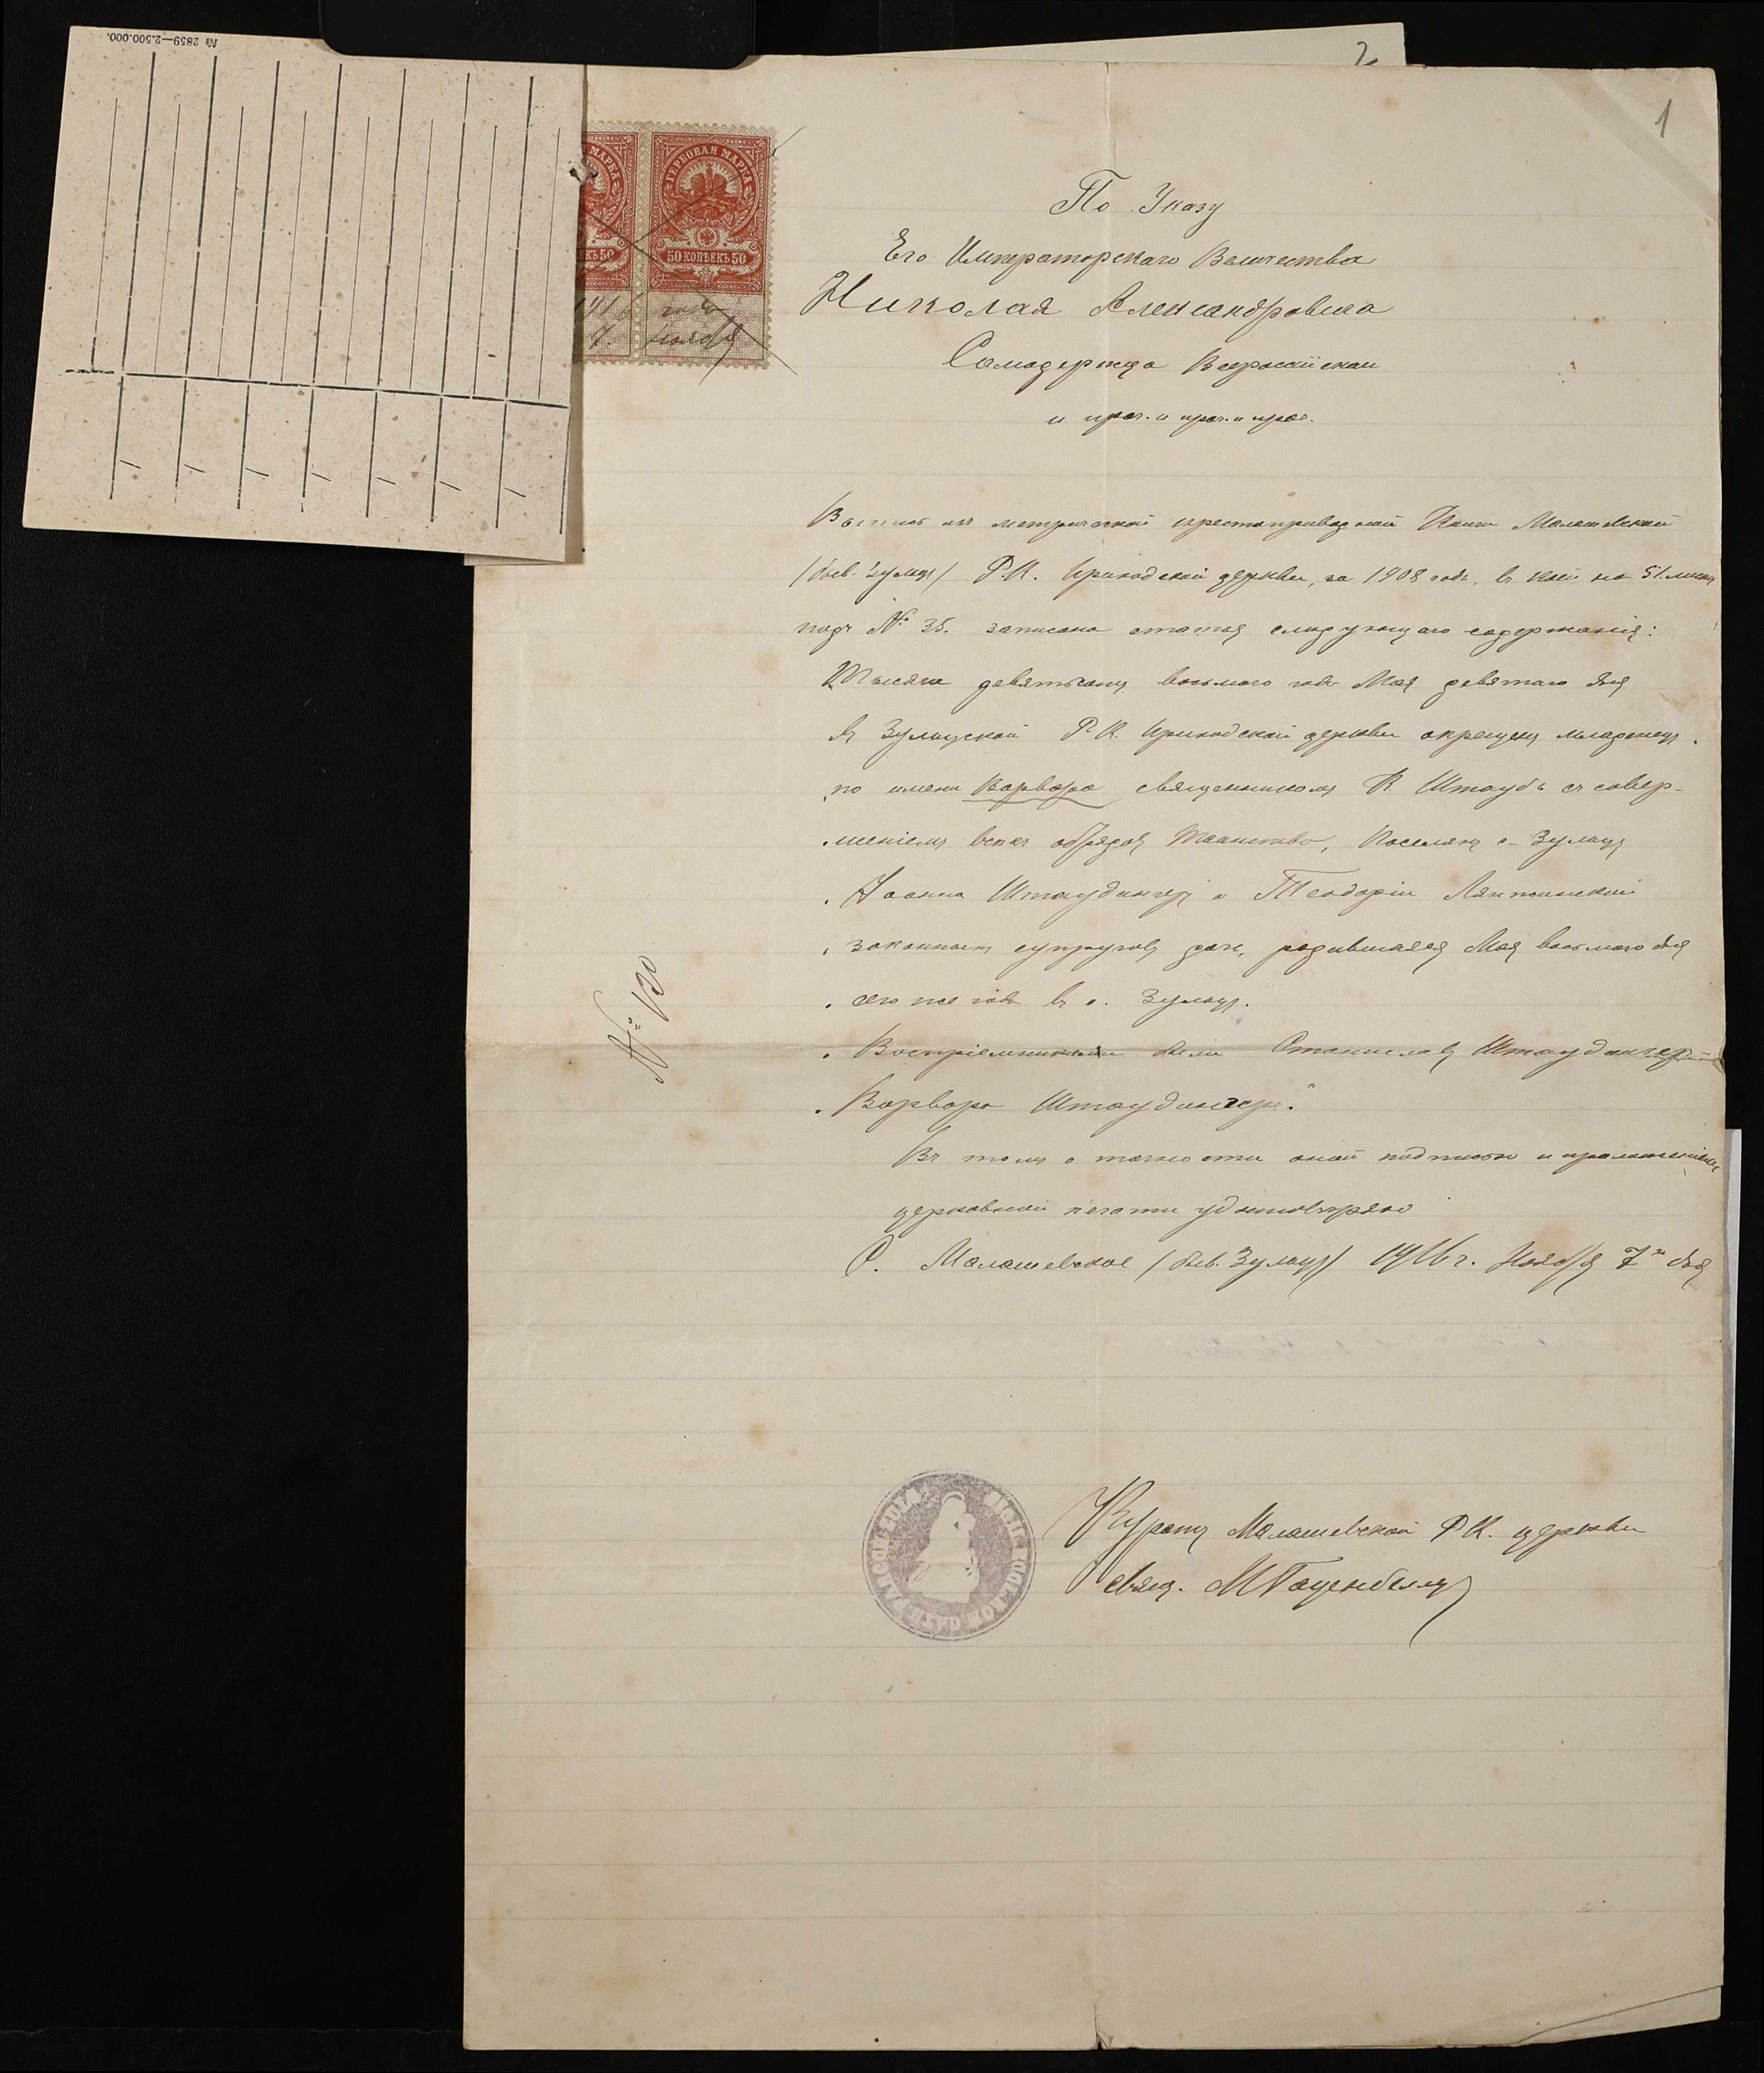 № 2859—2.500.000.
2
1
ГЕРБОВАЯ МАРКА
50 КОПѢЕКЪ 50
года
ноября
По Указу
Его Императорскаго Величества
Николая Александровича
Самодержца Всероссійскаго
и проч. и проч. и проч.
Выпись изъ метрической крестоприводной Книги Малашевской
/быв. Зульцъ/ Р.К. приходской церкви, за 1908 годъ, въ коей на 51 листѣ
подъ № 35. записана статья слѣдующаго содержанія:
„Тысяча девятьсотъ восьмого года Мая девятаго дня
въ Зульцской Р.К. приходской церкви окрещенъ младенецъ
по имени Варвара священникомъ Р. Штаубъ съ совер-
шеніемъ всѣхъ обрядовъ Таинства, Поселянъ с. Зульцъ
Іоанна Штаудингеръ и Теодоріи
законныхъ супруговъ дочь, родившаяся Мая восьмого дня
сего же года въ с. Зульцъ.
Воспріемниками были Станиславъ Штаудингеръ и
Варвара Штаудингеръ."
Въ томъ о точности оной подписью и приложеніемъ
церковной печати удостовѣряю
С. Малашевское /быв. Зульцъ/ 1916 г. Ноября 7го дня
№ 130
Куратъ Малашевской Р.К. церкви
свящ.